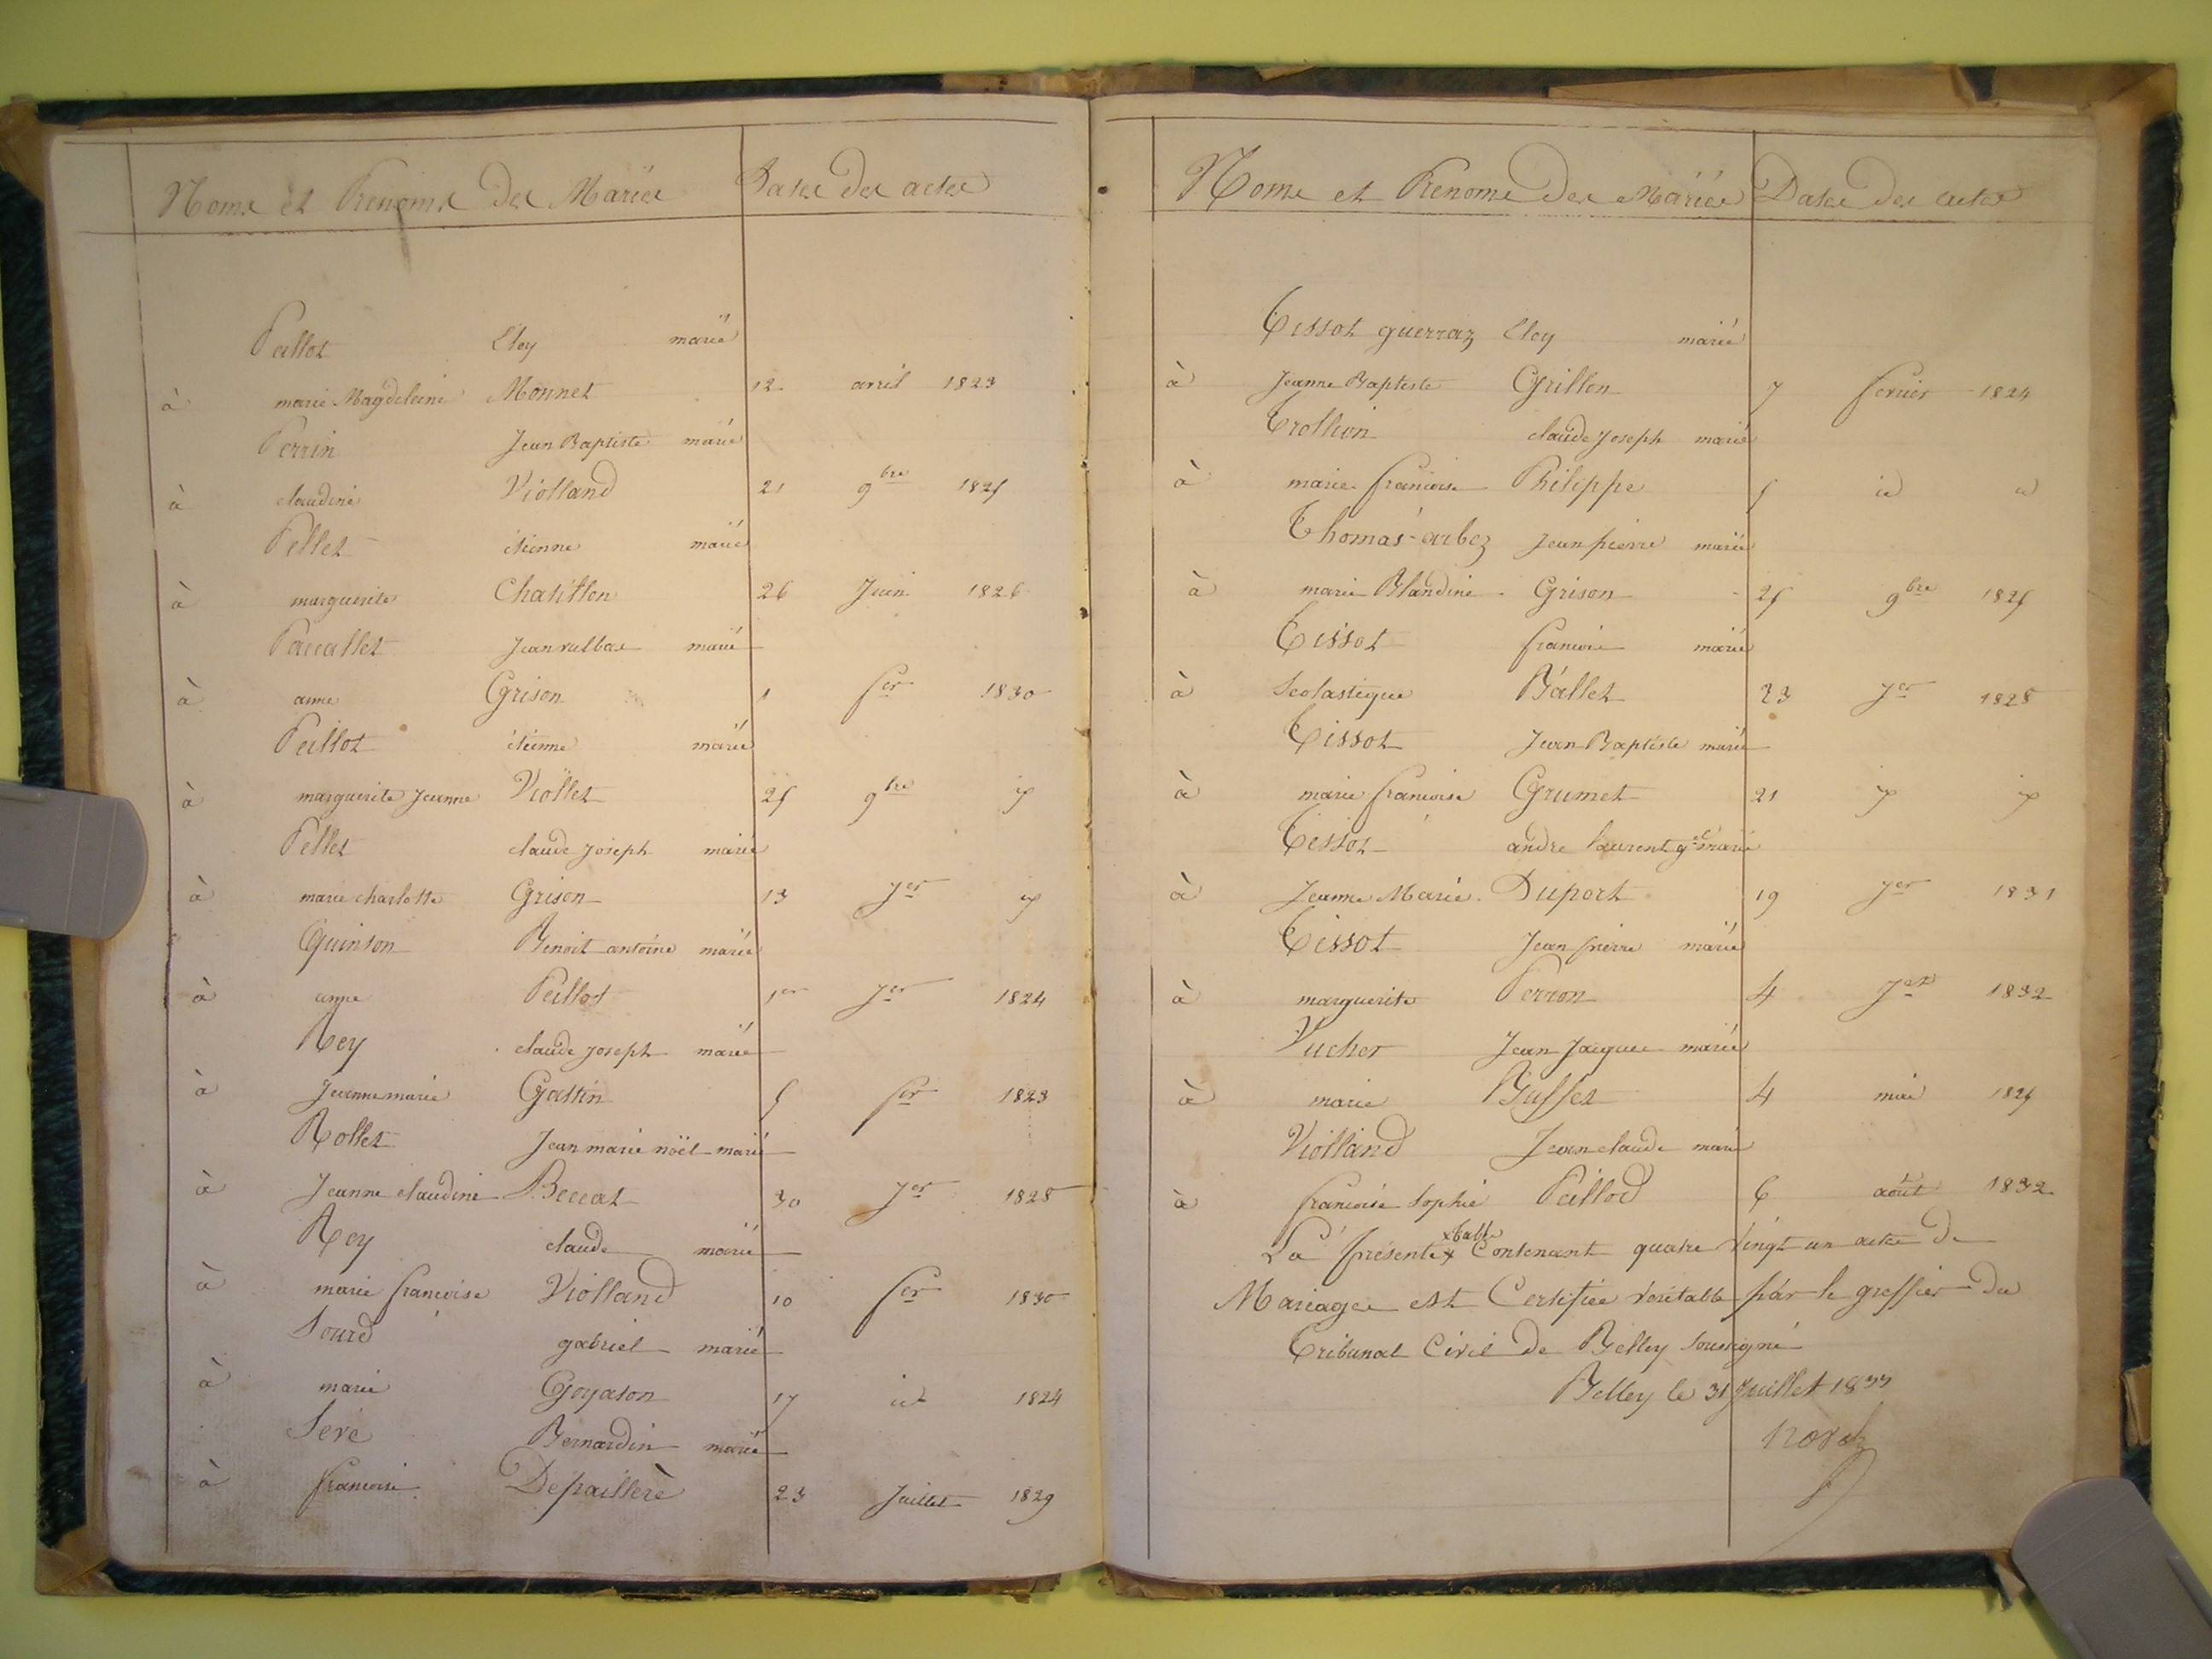 Noms et Prenoms des Mariés Dates des actes
Peillot Eloy marié
à marie Magdeleine Monnet 12 avril 1823
Perrin Jean Baptiste marié
à claudine Violland 21 9bre 1825
Pellet étienne marié
à marguerite Chatillon 26 Juin 1826
Paccallet Jean marié
à anne Grison 1 fer 1830
Peillot étienne marié
à marguerite Jeanne Viollet 25 9bre id
Pellet claude Joseph marié
à marie charlotte Grison 13 Jer id
Quinson Benoit antoine marié
à anne Peillot 1er Jer 1824
Rey claude Joseph marié
à Jeanne marie Gastin 5 fer 1823
Rollet Jean marie noël marié
à Jeanne claudine Beccat 30 Jer 1828
Rey claude marié
à marie francoise Violland 10 fer 1830
Sourd gabriel marié
à marie Goyason 17 id 1824
Seve Bernardin marié
à francoise Depaillere 23 Juillet 1829
Noms et Prenoms des Mariés Dates des actes
Tissot guerraz Eloy marié
à Jeanne Baptiste Grillon 7 fevrier 1824
Trollion claude Joseph marié
à marie francoise Philippe 5 id id
Thomas-arbez Jean pierre marié
à marie Blandine Grison 25 9bre 1825
Tissot francois marié
à Scolastique Ballet 23 Jer 1828
Tissot Jean Baptiste marié
à marie francoise Grumet 21 id id
Tissot andre laurent marié
à Jeanne Marie Duport 19 Jer 1831
Tissot Jean pierre marié
à marguerite Perron 4 Jer 1832
Vucher Jean Jacques marié
à marie Buffet 4 mai 1825
Violland Jean claude marié
à francoise Sophie Peillod 6 août 1832
x table
La présente x Contenant quatre vingt un actes de
Mariages est Certifiée véritable par le greffier du
Tribunal Civil de Belley soussigné
Belley le 31 Juillet 1833